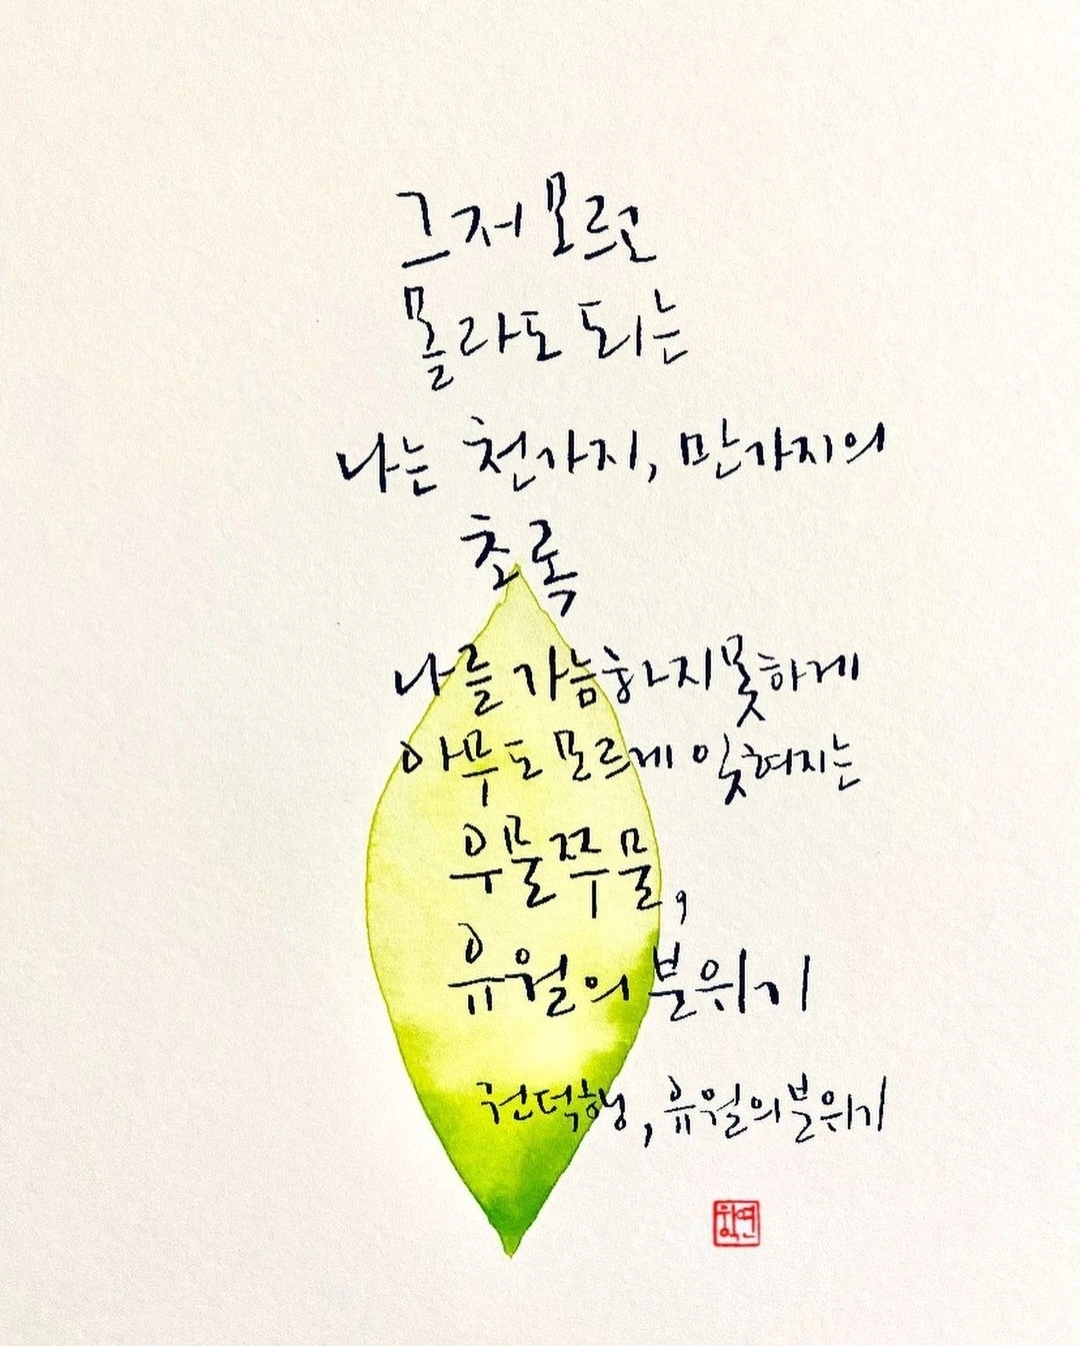 그저 모르고
몰라도 되는
나는 천가지, 만가지의
초록
나를 가늠하지 못하게
아무도 모르게 잊혀지는
우물쭈물,
유월의 분위기
권덕행, 유월의 분위기